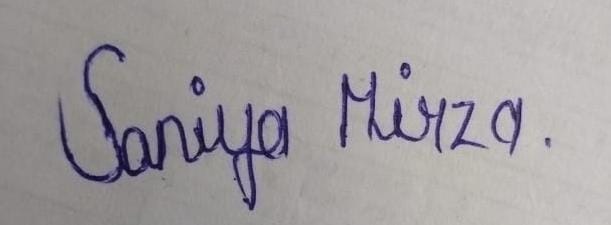 Saniya Mirza.